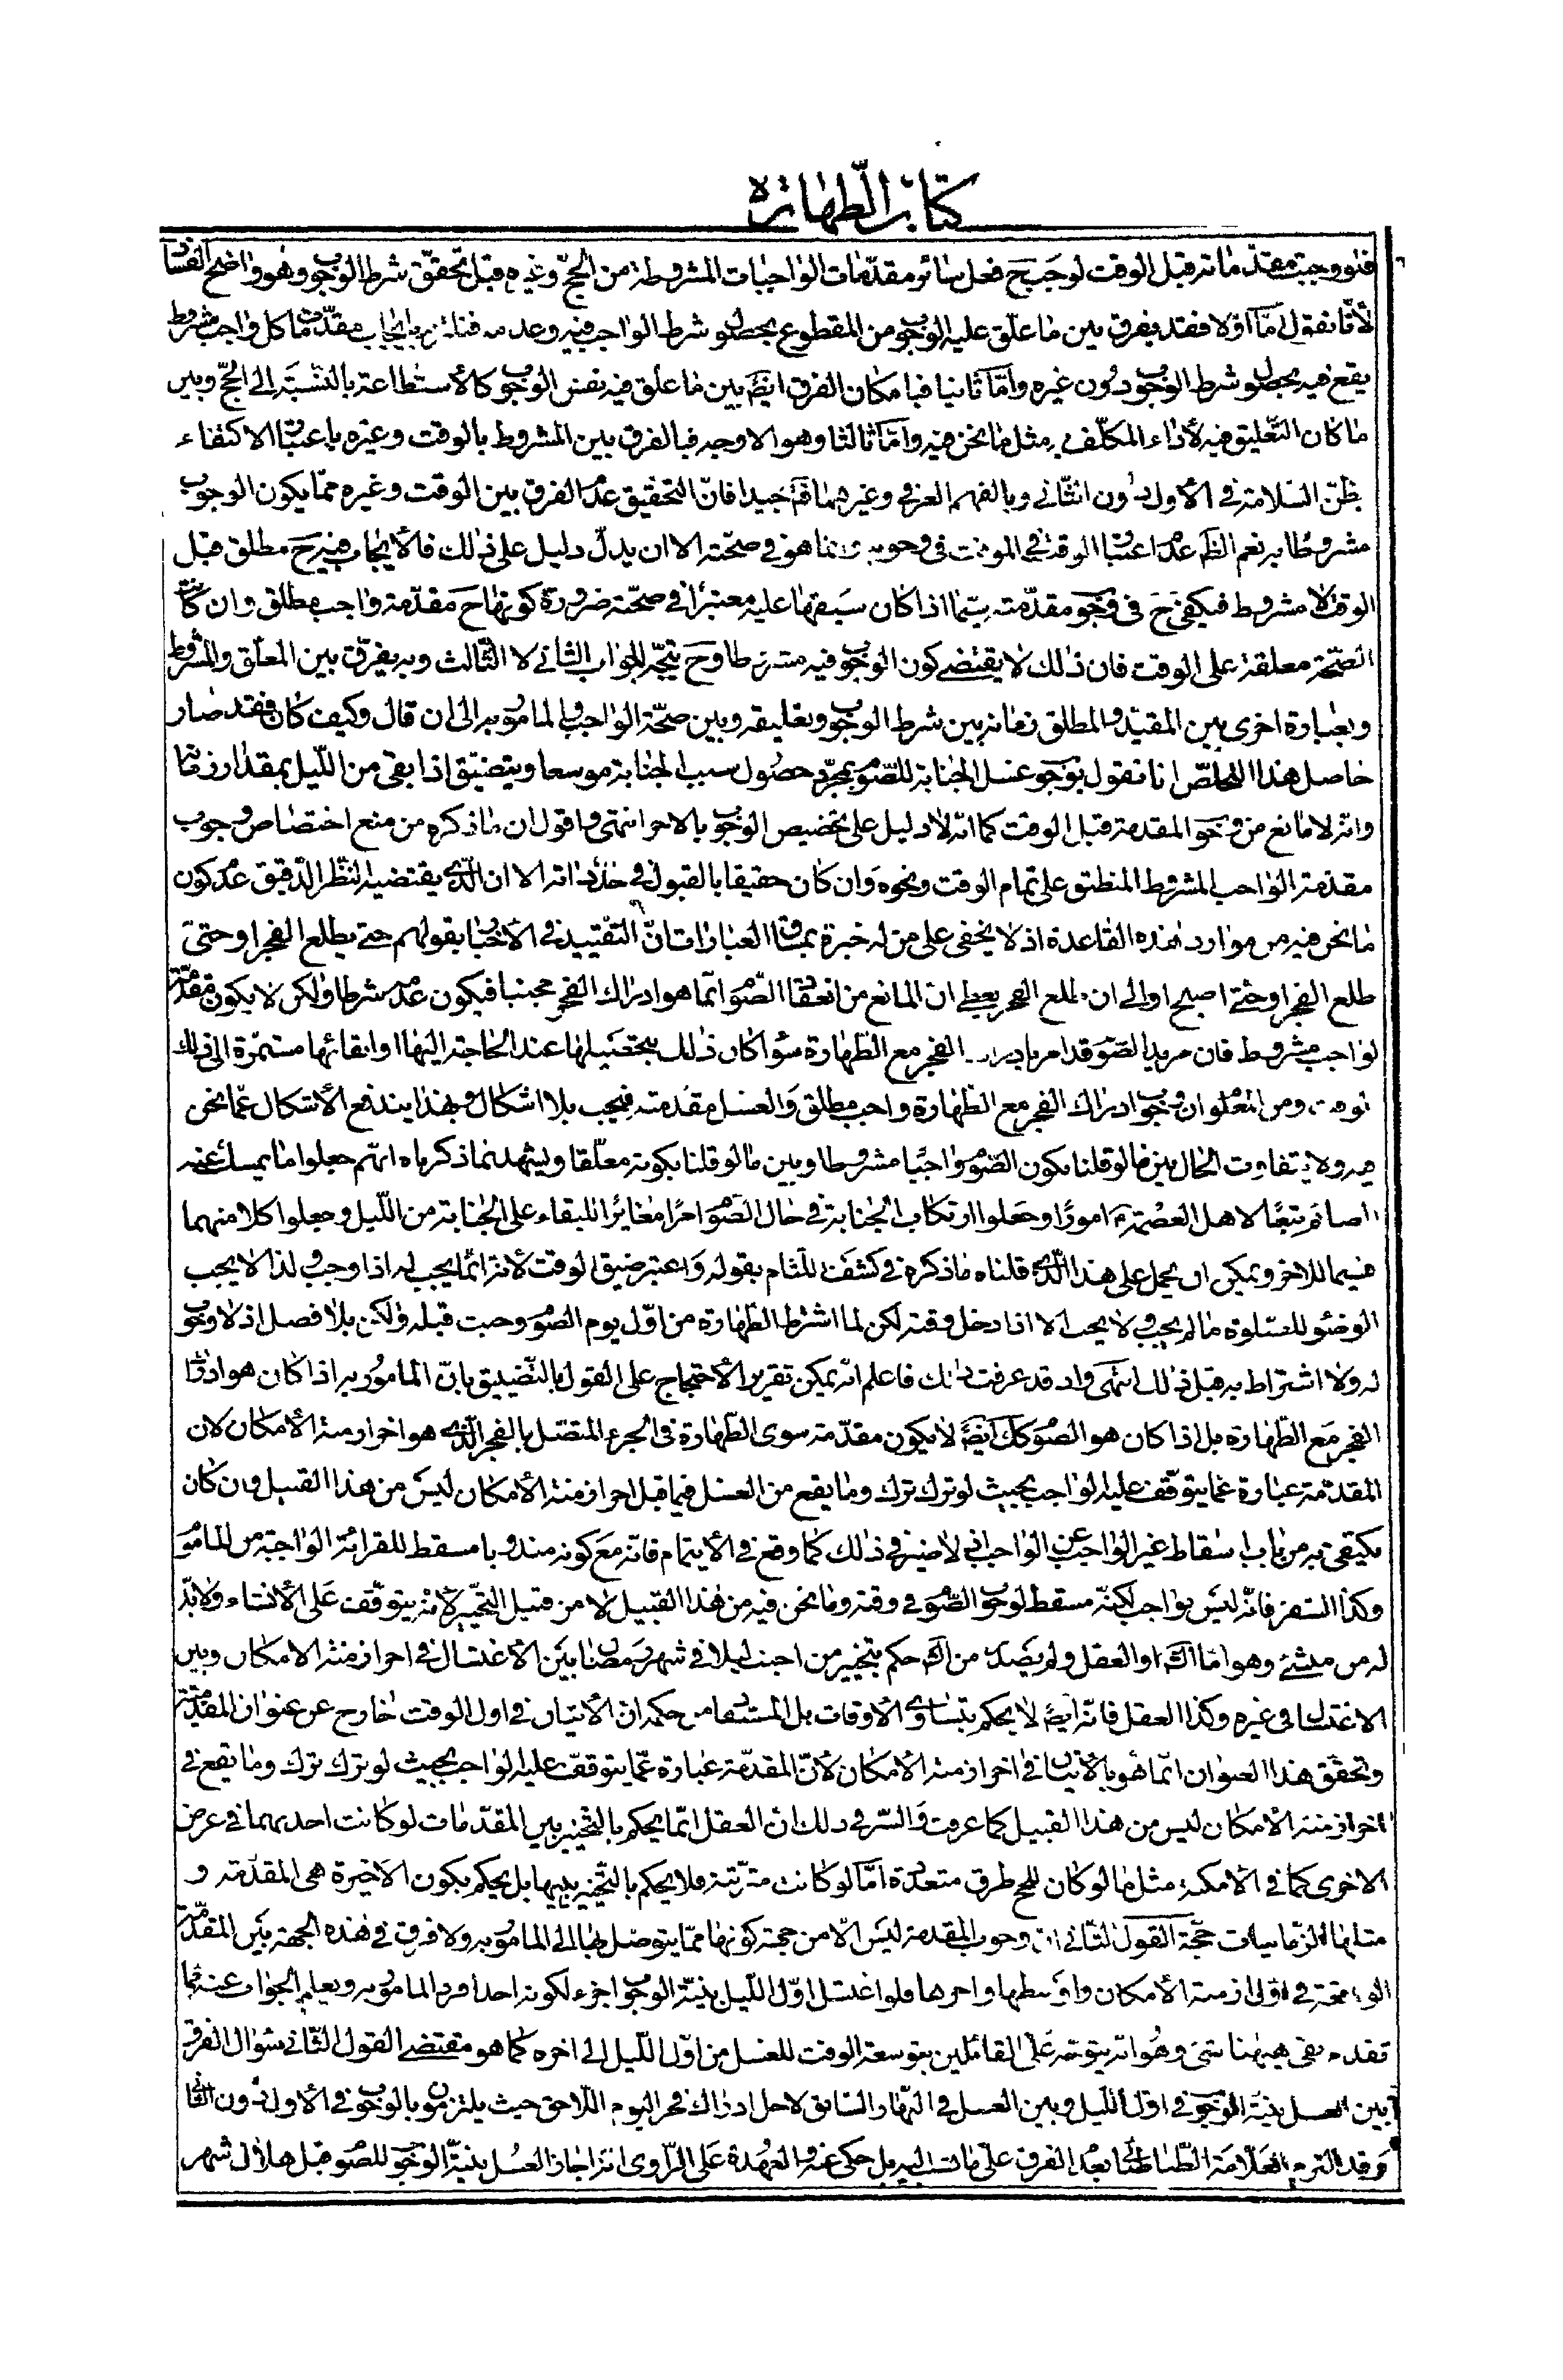 كتاب الطهارة
فلو وجبت مقدماته قبل الوقت لوجب ح فعل سائر مقدمات الواجبات المشروطة من الحجّ وغيره قبل تحقّق شرط الوجوب وهو واضح الفساد
لأنّا نقول امّا اوّلا فقد يفرق بين ما علّق عليه الوجوب من المقطوع بحصول شرط الواجب فيه وعدمه فنلتزم بايجاب مقدّمات كل واجب مشروط
يقع فيه بحصول شرط الوجوب دون غيره وامّا ثانيا فبامكان الفرق ايضا بين ما علّق فيه نفس الوجوب كالأستطاعة بالنسّبة إلى الحجّ وبين
ما كان التّعليق فيه لأداء المكلّف به مثل ما نحن فيه وامّا ثالثا وهو الاوجه فبالفرق بين المشروط بالوقت وغيره باعتبار الاكتفاء
بظنّ السّلامة في الأوّل دون الثّاني وبالفهم العرفي وغيرهما فت جيدا فانّ التحقيق عدم الفرق بين الوقت وغيره ممّا يكون الوجوب
مشروطا به نعم الظّ عدم اعتبار الوقت في الموقت في وجوبه وانما هو في صحّته الا ان يدلّ دليل على ذلك فالأيجاب فيه ح مطلق قبل
الوقت لا مشروط فيكفي ح في وجوب مقدّمته سيّما اذا كان سبقها عليه معتبرا في صحّته ضرورة كونها ح مقدّمة واجب مطلق وان كانت
الصّحّة معلقة على الوقت فان ذلك لا يقتضي كون الوجوب فيه مشروطا وح يتجّه الجواب الثاني لا الثّالث وبه يفرّق بين المعلّق والمشروط
وبعبارة اخرى بين المقيّد والمطلق زمانه بين شرط الوجوب وتعليقه وبين صحّة الواجب والمامور به الى ان قال وكيف كان فقد صار
حاصل هذا الملخّص انا نقول بوجوب غسل الجنابة للصّوم بمجرّد حصول سبب الجنابة موسعا ويتضيّق اذا بقى من اللّيل بمقدار زمانه
وانّه لا مانع من وجوب المقدمة قبل الوقت كما انّه لا دليل على تخصيص الوجوب بالاخر انتهى واقول ان ما ذكره من منع اختصاص وجوب
مقدّمة الواجب المشروط المنطبق على تمام الوقت ونحوه وان كان حقيقا بالقبول في حدّ ذاته الا ان الّذي يقتضيه النّظر الدّقيق عدم كون
ما نحن فيه من موارد هذه القاعدة اذ لا يخفى على من له خبرة بمساق العبارات انّ التقييد في الأخبار بقولهم حتى يطلع الفجر او حتى
طلع الفجر او حتى اصبح او الى ان طلع الفجر يعطى ان المانع من انعقاد الصّوم انّما هو ادراك الفجر مجنبا فيكون عدمه شرطا ولكن لا يكون مقدّمة
لواجب مشروط فان مريد الصّوم قد امر بادراك الفجر مع الطّهارة سواء كان ذلك بتحصيلها عند الحاجة اليها او ابقائها مستمرّة الى ذلك
الوقت ومن المعلوم ان وجوب ادراك الفجر مع الطّهارة واجب مطلق والغسل مقدّمته فيجب بلا اشكال وبهذا يندفع الأشكال عمّا نحن
فيه ولا يتفاوت الحال بين ما لو قلنا بكون الصّوم واجبا مشروطا وبين ما لو قلنا بكونه معلّقا ويشهد بما ذكرناه انّهم جعلوا ما يمسك عنه
الصائم تبعا لاهل العصمة ع امورا وجعلوا ارتكاب الجنابة في حال الصّوم امرا مغايرا للبقاء على الجنابة من اللّيل وجعلوا كلا منهما
قسيما للاخر ويمكن ان يحمل على هذا الّذي قلناه ما ذكره في كشف اللّثام بقوله واعتبر ضيق الوقت لأنّه انّما يجب له اذا وجب ولذا لا يجب
الوضوء للصّلوة ما لم يجب ولا يجب الا اذا دخل وقته لكن لما اشترط الطّهارة من اوّل يوم الصّوم وجبت قبله ولكن بلا فصل اذ لا وجوب
له ولا اشتراط به قبل ذلك انتهى واذ قد عرفت ذلك فاعلم انّه يمكن تقرير الأحتجاج على القول بالتّضييق بانّ المامور به اذا كان هو ادراك
الفجر مع الطّهارة بل اذا كان هو الصّوم كك ايضا لا يكون مقدّمته سوى الطّهارة في الجزء المتصل بالفجر الّذي هو اخر ازمنة الأمكان لان
المقدّمة عبارة عمّا يتوقّف عليه الواجب بحيث لو ترك ترك وما يقع من الغسل فيما قبل اخر ازمنة الأمكان ليس من هذا القبيل وان كان
يكتفى به من باب اسقاط غير الواجب عن الواجب اذ لا ضير في ذلك كما وقع في الأيتمام فانّه مع كونه مندوبا مسقط للقرائة الواجبة من المامور
وكذا السّفر فانّه ليس بواجب لكنّه مسقط لوجوب الصّوم في وقته وما نحن فيه من هذا القبيل لا من قبيل التخيير لأنّه يتوقّف على الأنشاء ولا بدّ
له من منشئ وهو امّا الشّرع او العقل ولم يصدر من الشّرع حكم بتخيير من اجنب ليلا في شهر رمضان بين الأغتسال في اخر ازمنة الامكان وبين
الاغتسال في غيره وكذا العقل فانّه ايضا لا يحكم بتساوي الأوقات بل المستفاد من حكمه ان الأتيان في اول الوقت خارج عن عنوان المقدّمية
وتحقّق هذا العنوان انّما هو بالأتيان في اخر ازمنة الأمكان لأنّ المقدّمة عبارة عمّا يتوقّف عليه الواجب بحيث لو ترك ترك وما يقع في
اخر ازمنة الأمكان ليس من هذا القبيل كما عرفت والسّر في ذلك ان العقل انّما يحكم بالتّخيير بين المقدّمات لو كانت احديهما في عرض
الاخرى كما في الأمكنة مثل ما لو كان للحج طرق متعدّدة امّا لو كانت مترتّبة فلا يحكم بالتّخيير بينها بل يحكم بكون الاخيرة هي المقدّمة و
مثلها الزمانيات حجّة القول الثّاني ان وجوب المقدمة ليس الّا من جهة كونها ممّا يتوصّل بها الى المامور به ولا فرق في هذه الجهة بين المقدّمة
الواقعة في اوّل ازمنة الأمكان واوسطها واخرها فلو اغتسل اوّل اللّيل بنيّة الوجوب اجزء لكونه احد افراد المامور به ويعلم الجواب عنه ممّا
تقدم بقى هيهنا شئ وهو انّه يتوجّه على القائلين بتوسعة الوقت للغسل من اوّل اللّيل الى اخره كما هو مقتضى القول الثّاني سؤال الفرق
بين الغسل بنيّة الوجوب في اوّل اللّيل وبين الغسل في النّهار السّابق لاجل ادراك فجر اليوم اللّاحق حيث يلتزمون بالوجوب في الأوّل دون الثّاني
وقد التزم العلّامة الطّباطبائي بعدم الفرق على ما نسب اليه بل حكى عنه والعهدة على الرّاوي انّه اجاز الغسل بنيّة الوجوب للصّوم قبل هلال شهر